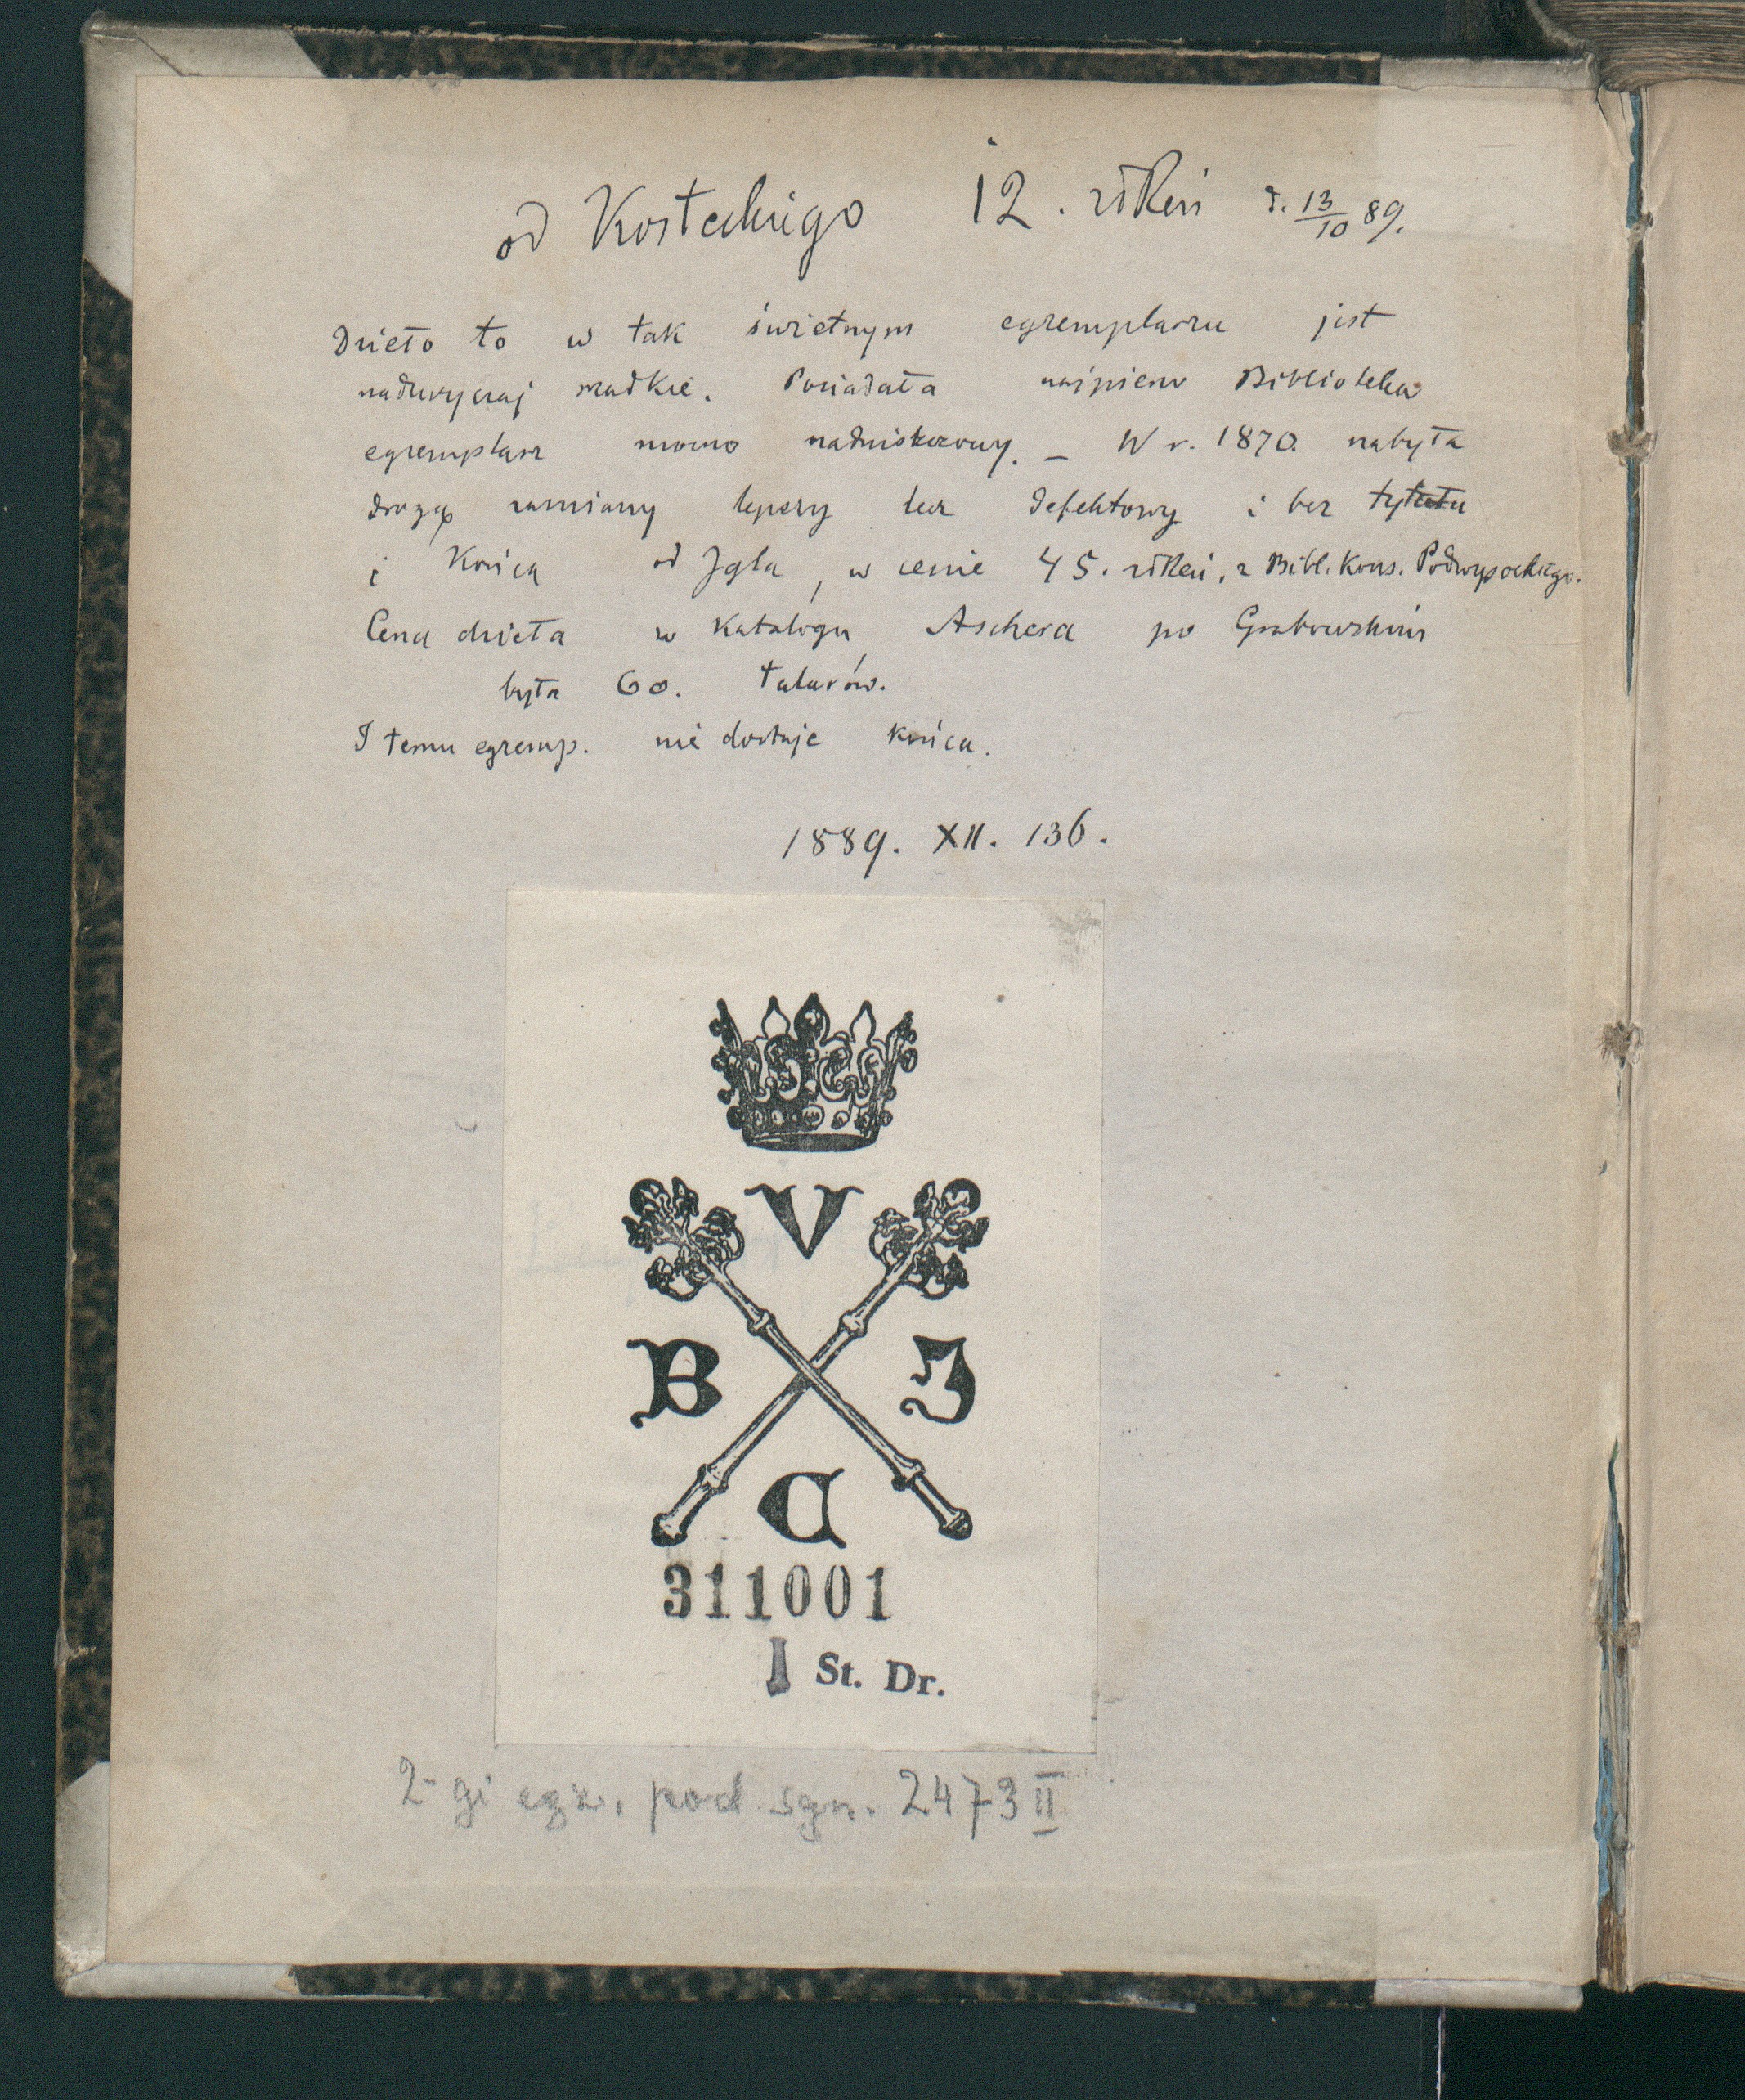 od Kosteckiego 12. złReń d. 13/10 89.
Dzieło to w tak świetnym egzemplarzu jest
nadzwyczaj rzadkie. Posiadała najpierw Biblioteka
egzemplarz mocno nadniszczony. – W r. 1870. nabyła
drogą zamiany lepszy lecz defektowy i bez tytułu
i końca od Igla, w cenie 45. złReń, z Bibl. Kons. Podwysockiego.
Cena dzieła w katalogu Aschera po Grabowskim
była 60. talarów.
I temu egzemp. nie dostaje końca.
1889. XII. 136.
V
B J
C
311001
I St. Dr.
2-gi egz. pod sgn. 2473 II